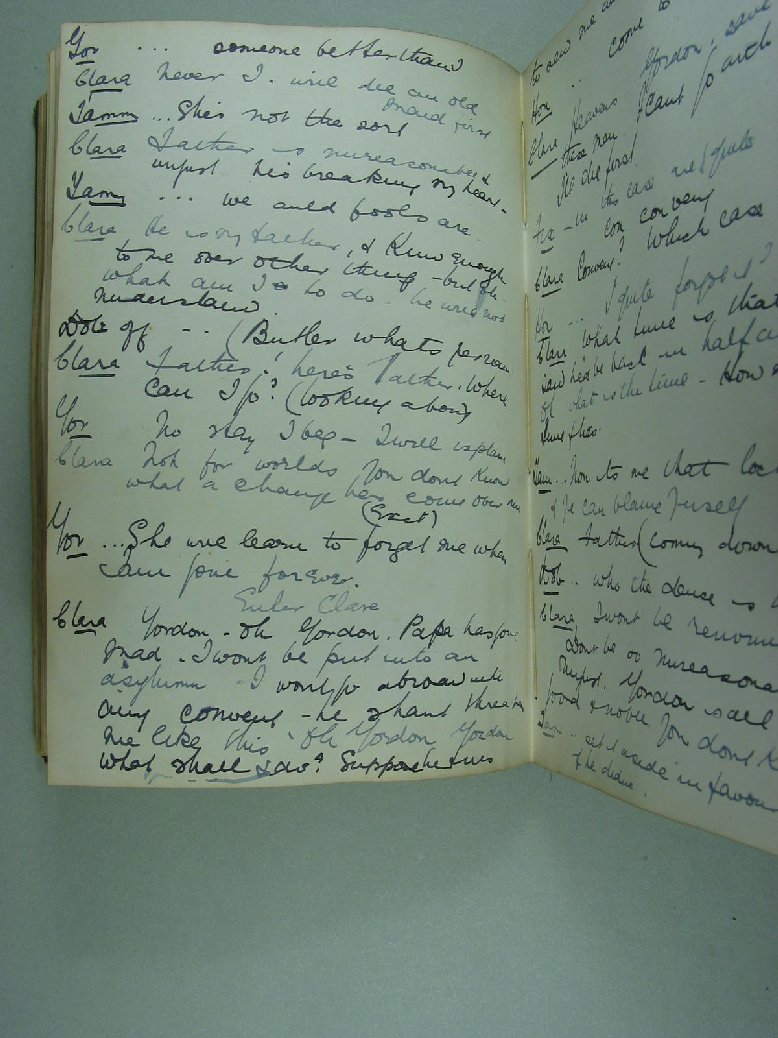 Gor ... someone better than
Clara Never I will die an old
maid first
Tammy ... She's not the sort
Clara Father is unreasonable &
unjust his breaking my heart -
Tamy ... we auld fools are
Clara He is my father, & Knows enough
to me over other things - but oh
what am I to do - he will not
understand
Dob off .. (Butler whats person
Clara Father! here's Father. Where
can I go? (looking about)
Gor No stay I beg - I will explain
Clara Not for worlds you dont Know
what a change has come over me
(Exit)
Gor ... She will learn to forget me when
I am gone forever.
Enter Clara
Clara Gordon - oh Gordon. Papa has gone
mad - I wont be put into an
asylum - I wont go abroad into
any convent - he shant threaten
me like this - oh Gordon Gordon
What shall I do? Suppose he
to
come to
Hox Gordon, save
Clara Heavens
these men. I cant go with
I'll die first
- in this case are quite
con conveny
Clara Convent? Which case
Gor ... I quite forgot
Clara What time is that
said he'd be back in half a
Oh what is the time - How
time flies.
Tam ... Non its me that
if ye can blame yerself
Clara Father (coming down
Rob .. who the deuce is
Clara, I wont be
Dont be so unreasona
unjust. Gordon is all
good & noble You dont K
Tam ... set it aside in favou